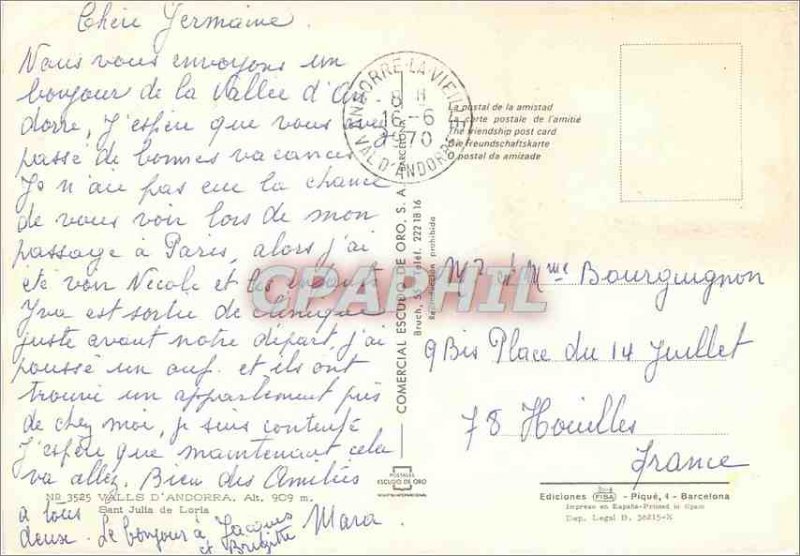 Chère Germaine.
Nous vous envoyons un
bonjour de la Vallée d'An
dorre, J'espère que vous avez
passé de bonnes vacances
Je n'aie pas eue la chance
de vous voir lors de mon
passage à Paris, alors j'ai
été voir Nicole et les enfants
Yva est sortie de clinique
juste avant notre départ, j'ai
poussé un ouf. et ils ont
trouvé un appartement près
de chez moi, je suis contente
J'espère que maintenant cela
va allez. Bien des Amitiés
à tous
deux. Le bonjour à Jacques
et Brigitte
Mara.
Nº 3525 VALLS D'ANDORRA. Alt. 909 m.
Sant Julia de Loria
ANDORRE-LA-VIEILLE
8 H
16-6
1970
VAL D'ANDORRE
COMERCIAL ESCUDO DE ORO, S. A. BARCELONA
Bruch, 55 Teléf. 222 18 16
Reproducción prohibida
POSTALES
ESCUDO DE ORO
La postal de la amistad
La carte postale de l'amitié
The friendship post card
Die Freundschaftskarte
O postal da amizade
Mr et Mme Bourguignon
9 Bis Place du 14 Juillet
78 Houilles
France
Ediciones FISA - Piqué, 4 - Barcelona
Impreso en España-Printed in Spain
Dep. Legal B. 36215-X
CPAPHIL